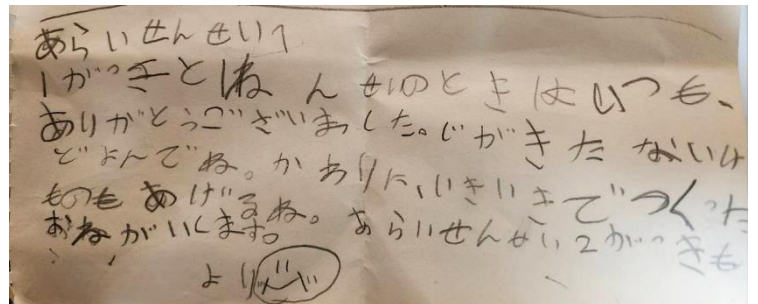 あらいせんせいへ
1がっきと1ねんせいのときはいつも、
ありがとうございまっした。じがきたないけ
どよんでね。かわりに、いきいきでつくった
ものもあげるね。あらいせんせい2がっきも
おねがいします。
より